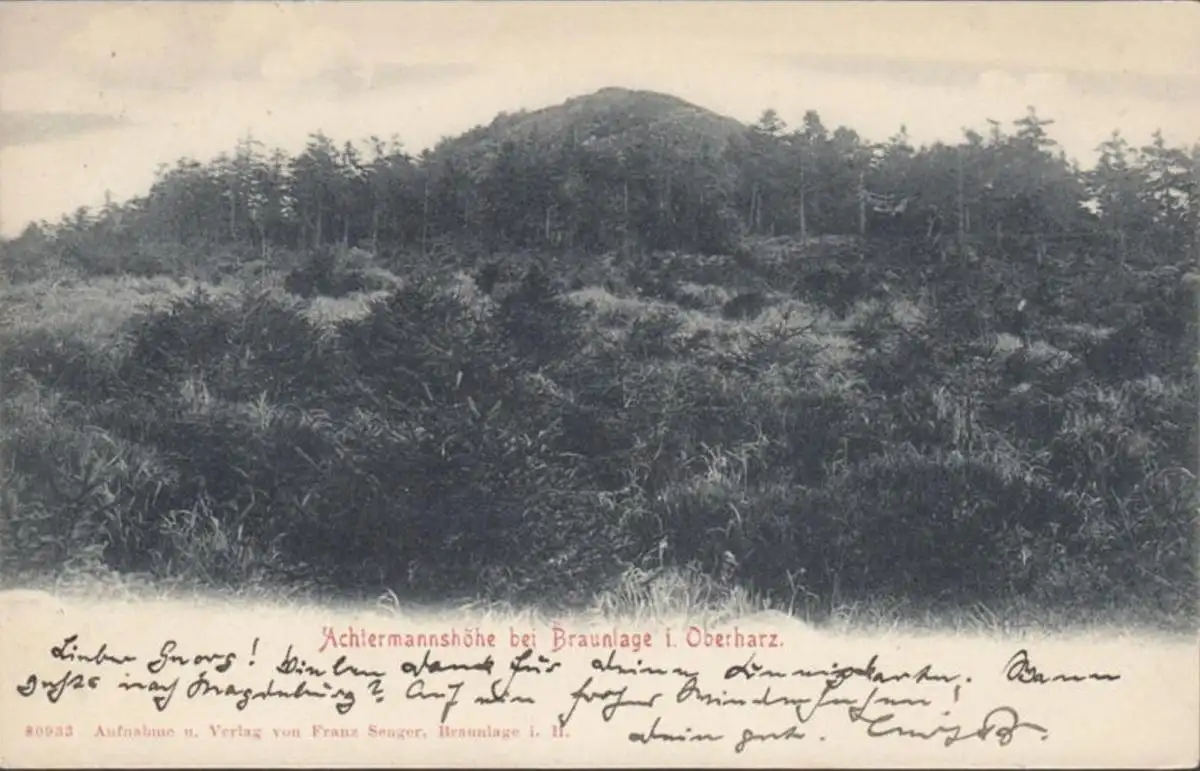 Achtermannshöhe bei Braunlage i. Oberharz.
Lieber Georg! Vielen Dank für deine Ansichtskarten. Wann
gehts nach Magdeburg? Auf ein frohes Wiedersehen!
80933 Aufnahme u. Verlag von Franz Senger, Braunlage i. H.
dein